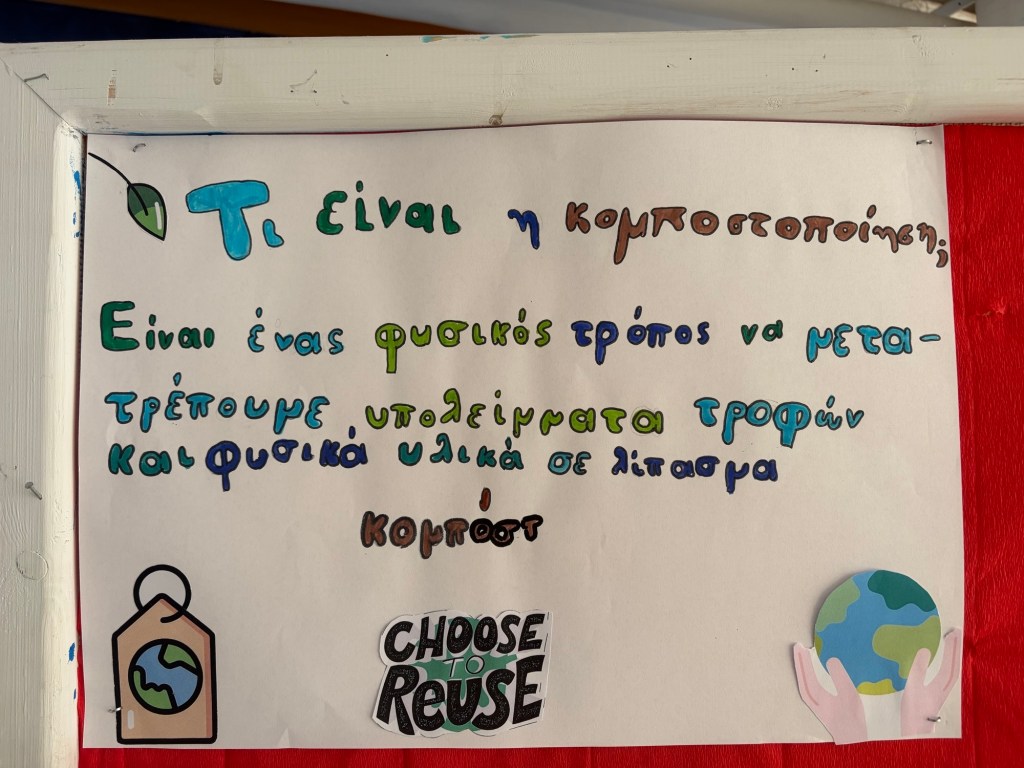 Τι είναι η κομποστοποίηση;
Είναι ένας φυσικός τρόπος να μετα-
τρέπουμε υπολείμματα τροφών
και φυσικά υλικά σε λίπασμα
κομπόστ
CHOOSE
TO
REUSE